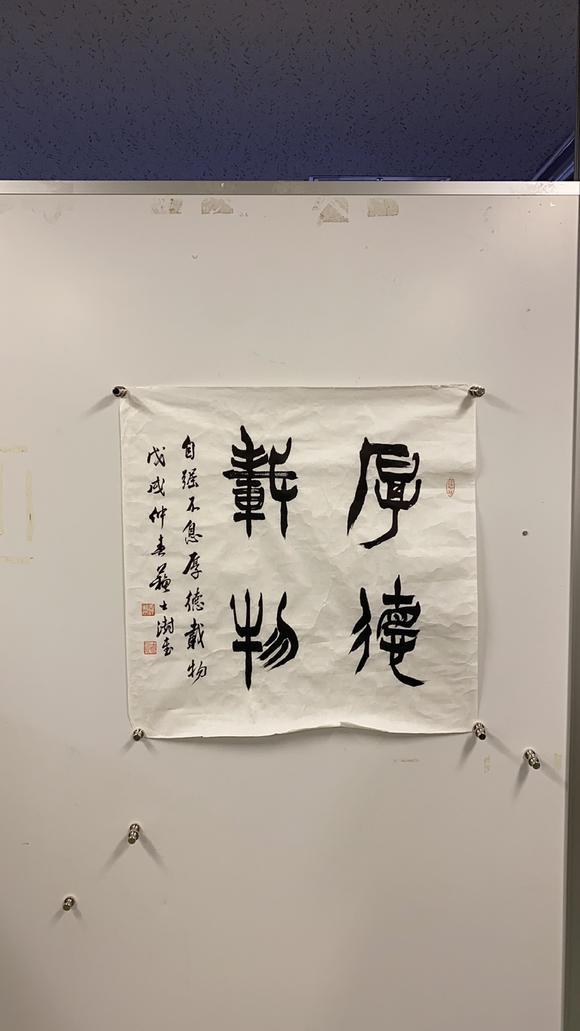 厚德
載物
自强不息厚德載物
戊戌仲春蘇士澍書